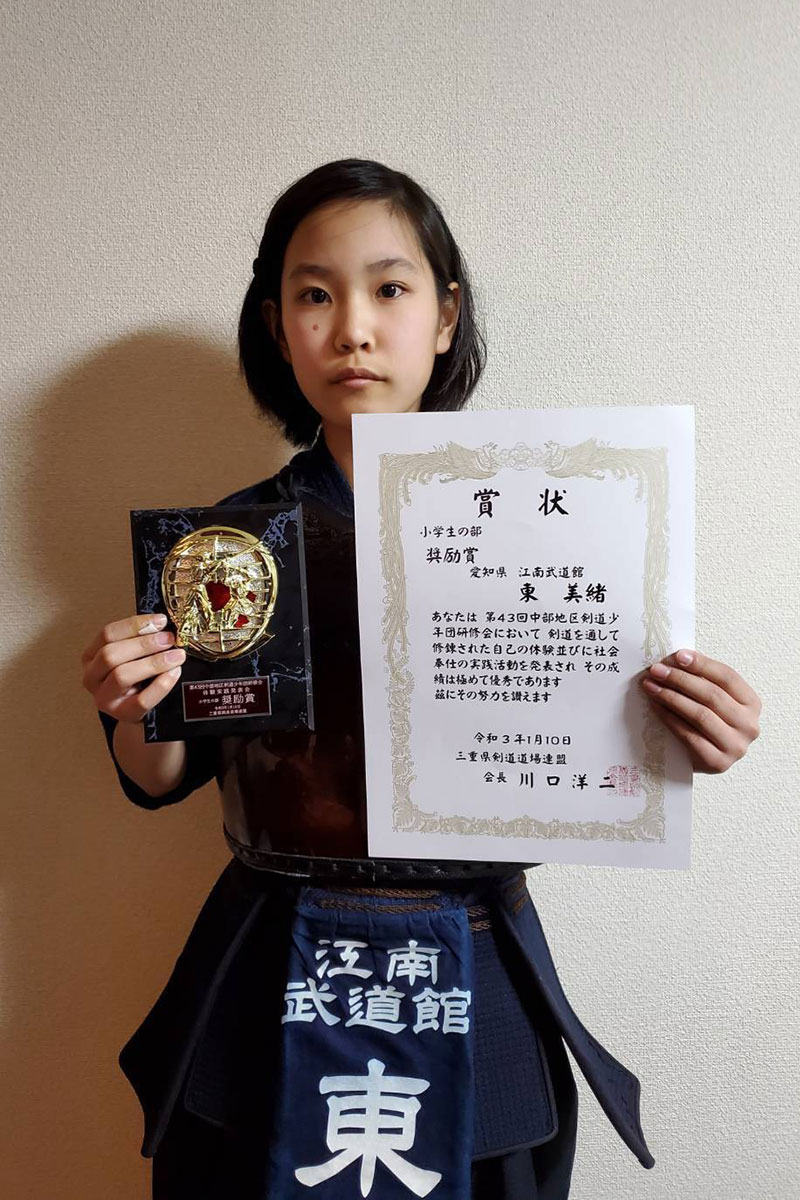 賞 状
小学生の部
奨励賞
愛知県 江南武道館
東 美緒
あなたは 第43回中部地区剣道少
年団研修会において 剣道を通して
修錬された自己の体験並びに社会
奉仕の実践活動を発表され その成
績は極めて優秀であります
茲にその努力を讃えます
令和3年1月10日
三重県剣道道場連盟
会長 川口洋二
第43回中部地区剣道少年団研修会
体験実践発表会
小学生の部 奨励賞
令和3年1月10日
三重県剣道道場連盟
江南
武道館
東